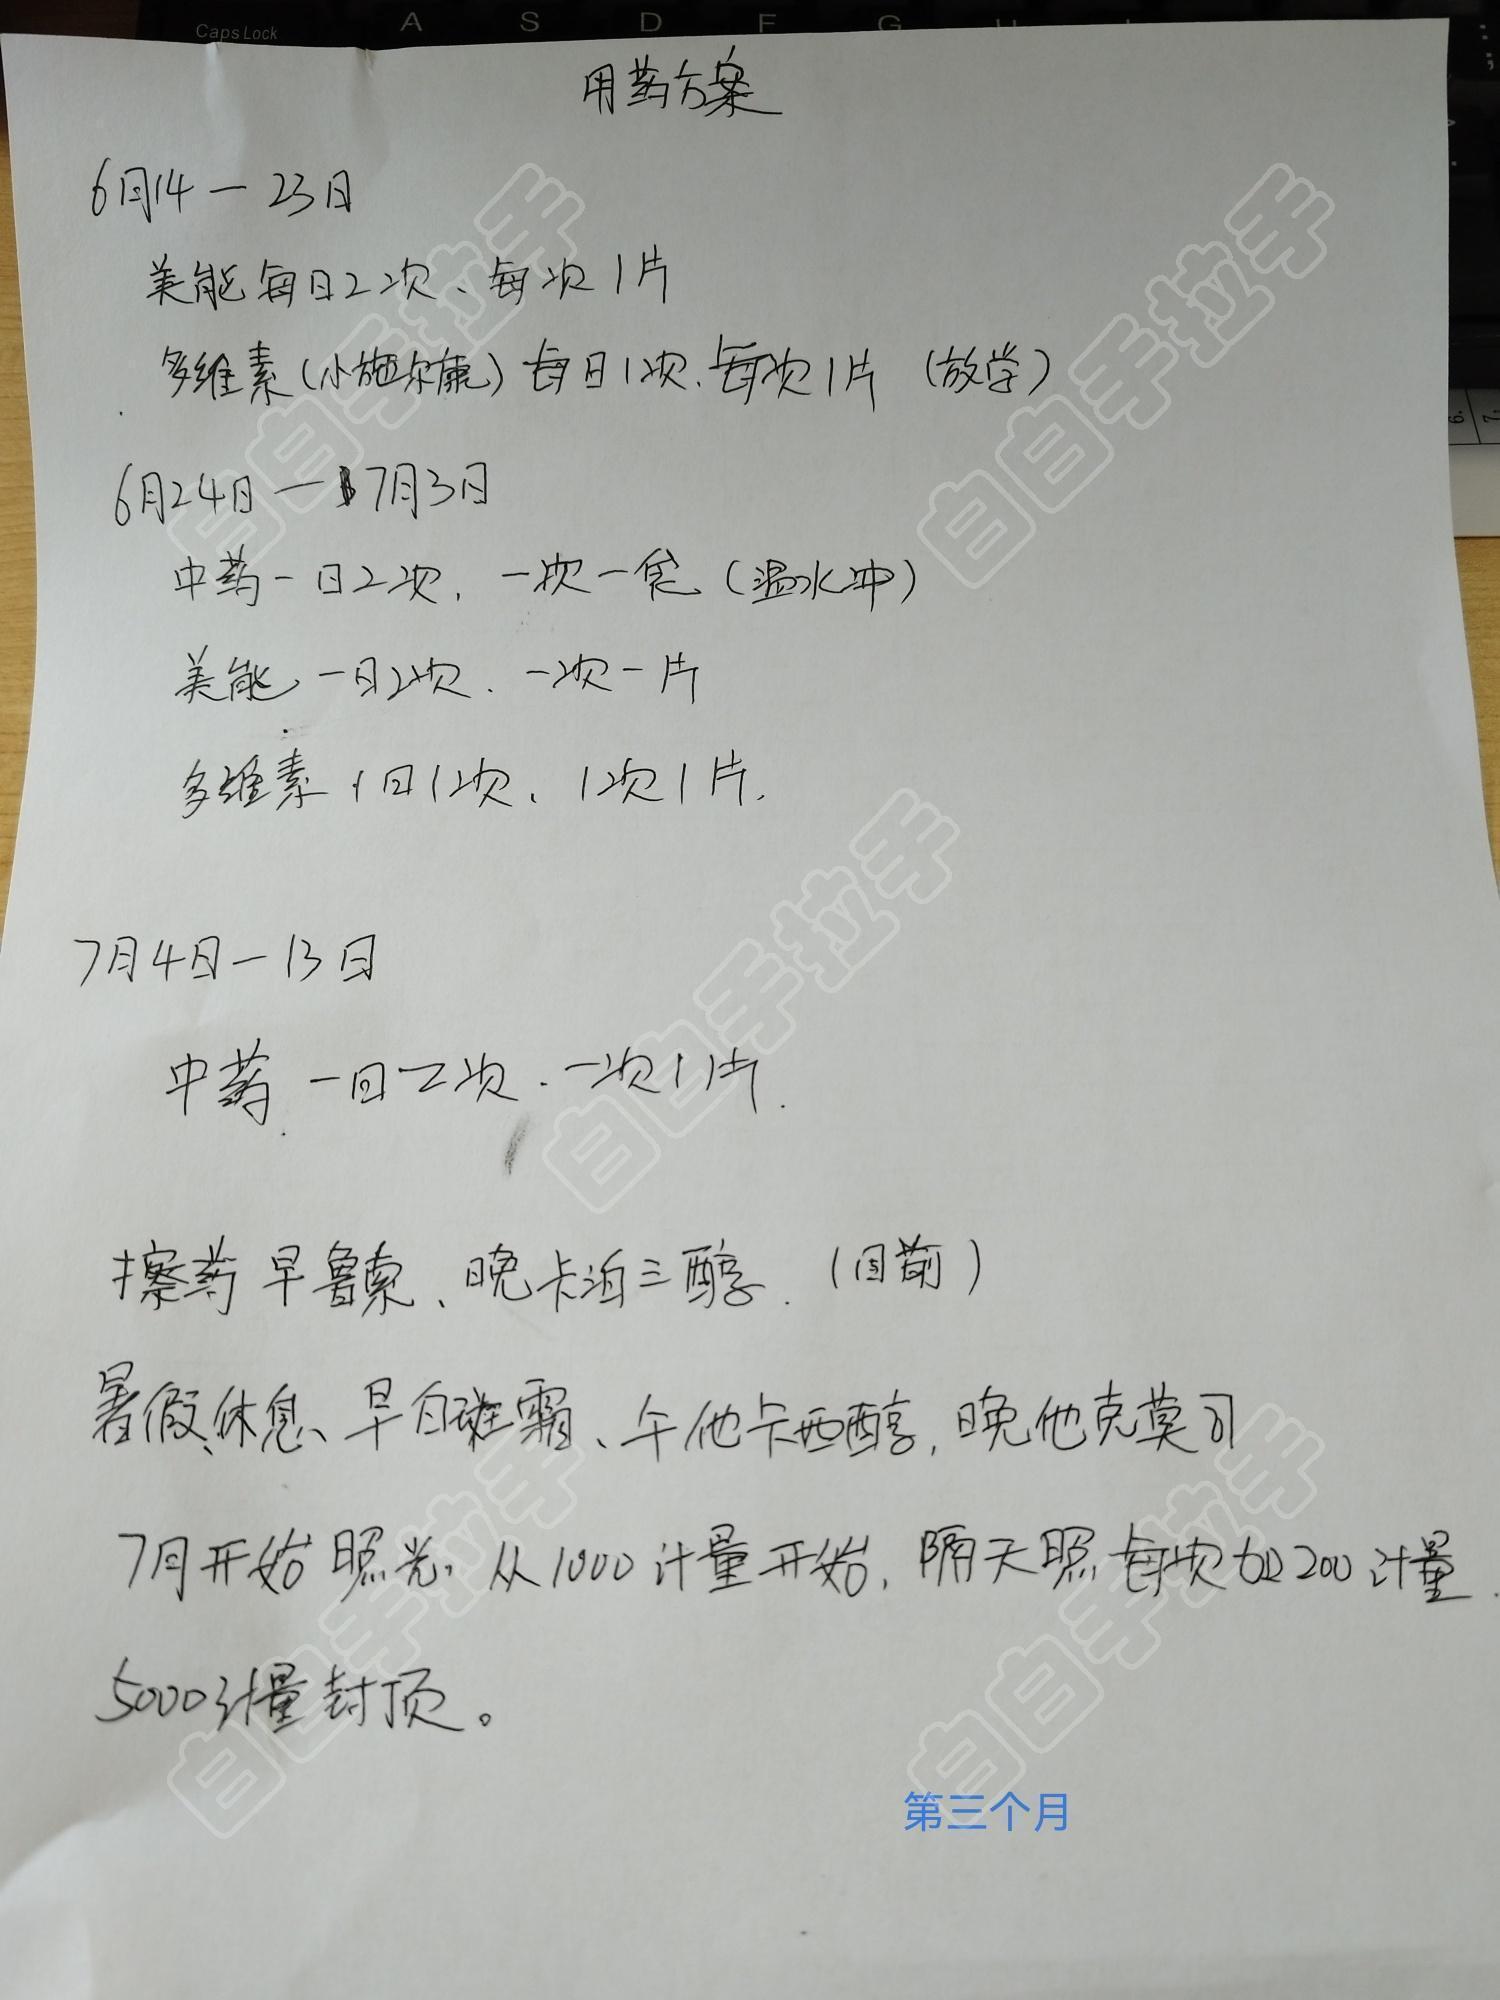 Caps Lock A S D F G
用药方案
6月14一23日
美能每日2次、每次1片
多维素(小施尔康)每日1次、每次1片(放学)
6月24日一7月3日
中药一日2次,一次一袋(温水冲)
美能一日2次、一次一片
多维素1日1次、1次1片.
7月4日一13日
中药一日二次.一次1片.
擦药早鲁索、晚卡泊三醇.(目前)
暑假休息、早白斑霜、午他卡西醇,晚他克莫司
7月开始照光.从1000计量开始,隔天照每次加200计量.
5000计量封顶。
第三个月
白白手拉手
白白手拉手
白白手拉手
白白手拉手
白白手拉手